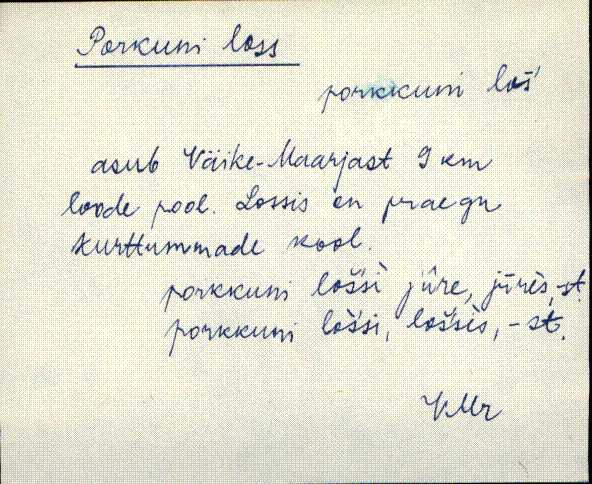 Porkuni loss
porkkuni loš́
asub Väike-Maarjast 9 km
loode pool. Lossis on praegu
kurttummade kool.
porkkuni lošši jūre, jūrès, -st.
porkkuni lošsi, lošsès, -st.
VMr